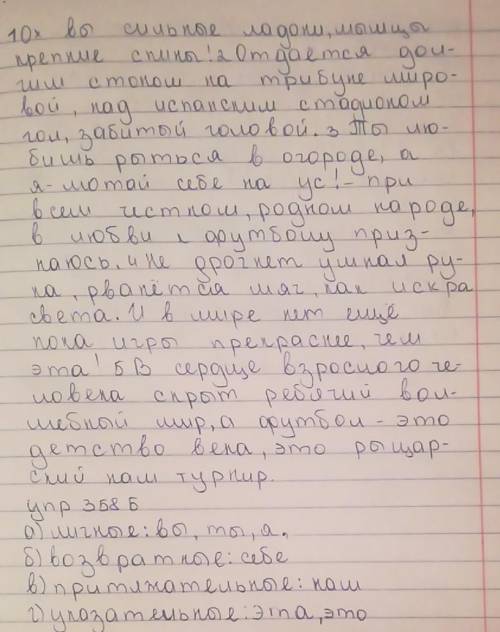 10х вы сильные ладони, мышцы
крепкие спины! 2 Отдается дол-
гим стоном на трибуне миро-
вой, над испанским стадионом
гол, забитый головой. 3 Ты лю-
бишь рыться в огороде, а
я - мотай себе на ус! - при
всем честном, родном народе,
в любви к футболу приз-
наюсь. 4 Не дрогнет умная ру-
ка, рванётся мяч, как искра
света. И в мире нет ещё
пока игры прекрасне, чем
эта! 5 В сердце взрослого че-
ловека скрыт ребячий вол-
шебный мир, а футбол - это
детство века, это рыцар-
ский наш турнир.
упр 358 Б
а) личные: вы, ты, я,
б) возвратные: себе
в) притяжательные: наш
г) указательные: эта, это